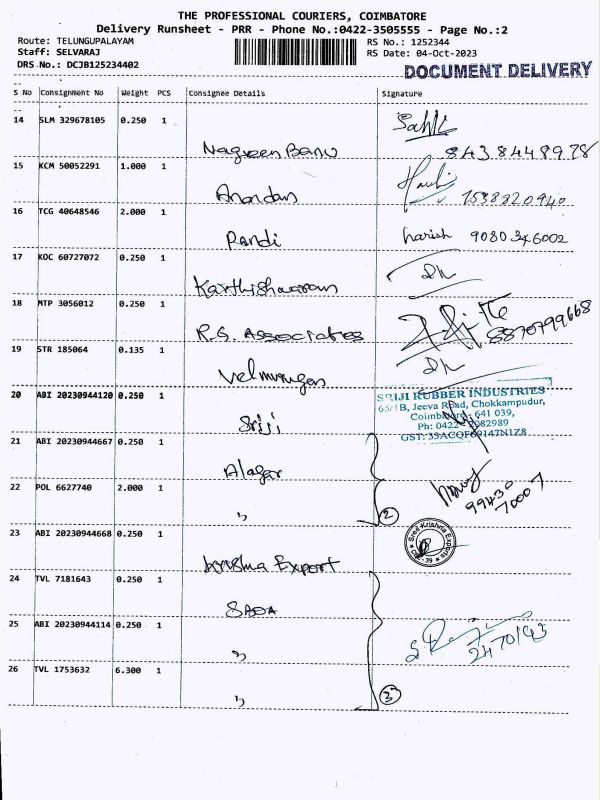 THE PROFESSIONAL COURIERS, COIMBATORE
Delivery Runsheet - PRR - Phone No.:0422-3505555 - Page No.:2
Route: TELUNGUPALAYAM
Staff: SELVARAJ
DRS No.: DCJB125234402
RS No.: 1252344
RS Date: 04-Oct-2023
DOCUMENT DELIVERY
S No Consignment No Weight PCS Consignee Details Signature
14 SLM 329678105 0.250 1
Nagreen Banu 8438448978
15 KCM 50052291 1.000 1
Anandan
16 TCG 40648546 2.000 1
Pandi harish 9080346002
17 KOC 60727072 0.250 1
18 MTP 3056012 0.250 1
R.S. Associates 8870799668
19 STR 185064 0.135 1
Velmurugan
20 ABI 20230944120 0.250 1
Sriji
SRIJI RUBBER INDUSTRIES
65/1B, Jeeva Road, Chokkampudur,
Coimbatore - 641 039,
Ph: 0422
GST:
21 ABI 20230944667 0.250 1
Alagar
22 POL 6627740 2.000 1
" 2
99430
70007
23 ABI 20230944668 0.250 1
Krishna Export
Sree Krishna Exports
24 TVL 7181643 0.250 1
SADA
25 ABI 20230944114 0.250 1
"
26 TVL 1753632 6.300 1
" 3